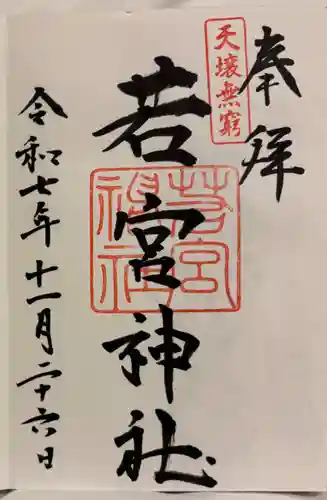 奉拝
天壌無窮
若宮神社
若宮神社
令和七年十一月二十六日